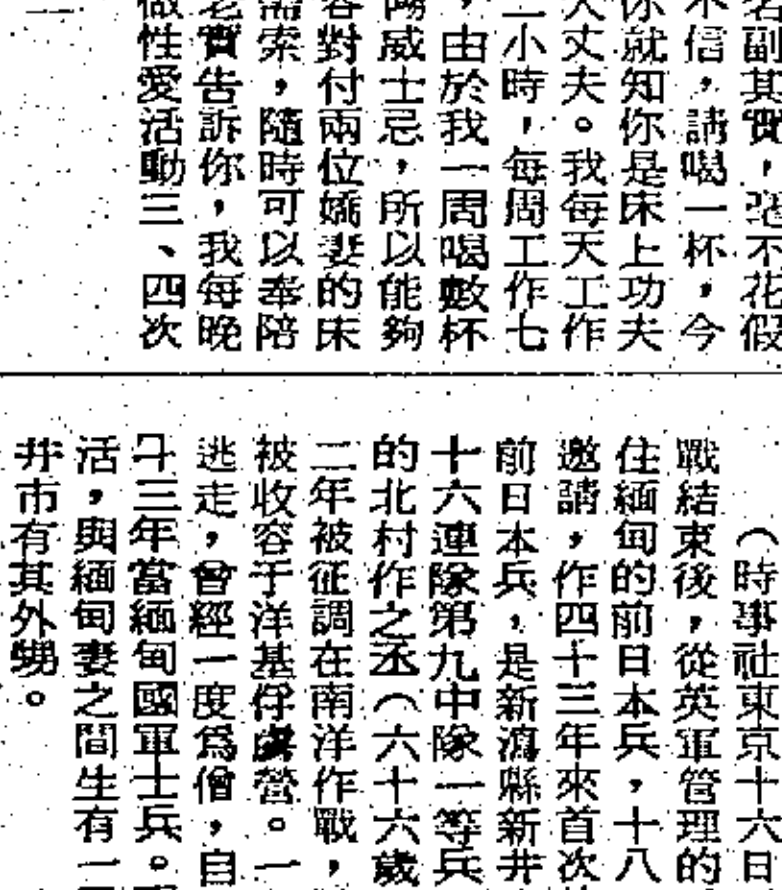 名副其實，絕不花假
不信，請喝一杯，今
你就知你是床上功夫
大丈夫。我每天工作
二小時，每周工作七
，由於我一周喝數杯
陽威士忌，所以能夠
容對付兩位嬌妻的床
需索，隨時可以奉陪
老實告訴你，我每晚
做性愛活動三、四次
（時事社東京十六日
戰結束後，從英軍管理的
住緬甸的前日本兵，十八
邀請，作四十三年來首次
前日本兵，是新瀉縣新井
十六連隊第九中隊一等兵
的北村作之丞（六十六歲
二年被征調在南洋作戰，
被收容于洋基俘虜營。一
逃走，曾經一度爲僧，自
三年當緬甸國軍士兵。
活，與緬甸妻之間生有一
井市有其外甥。